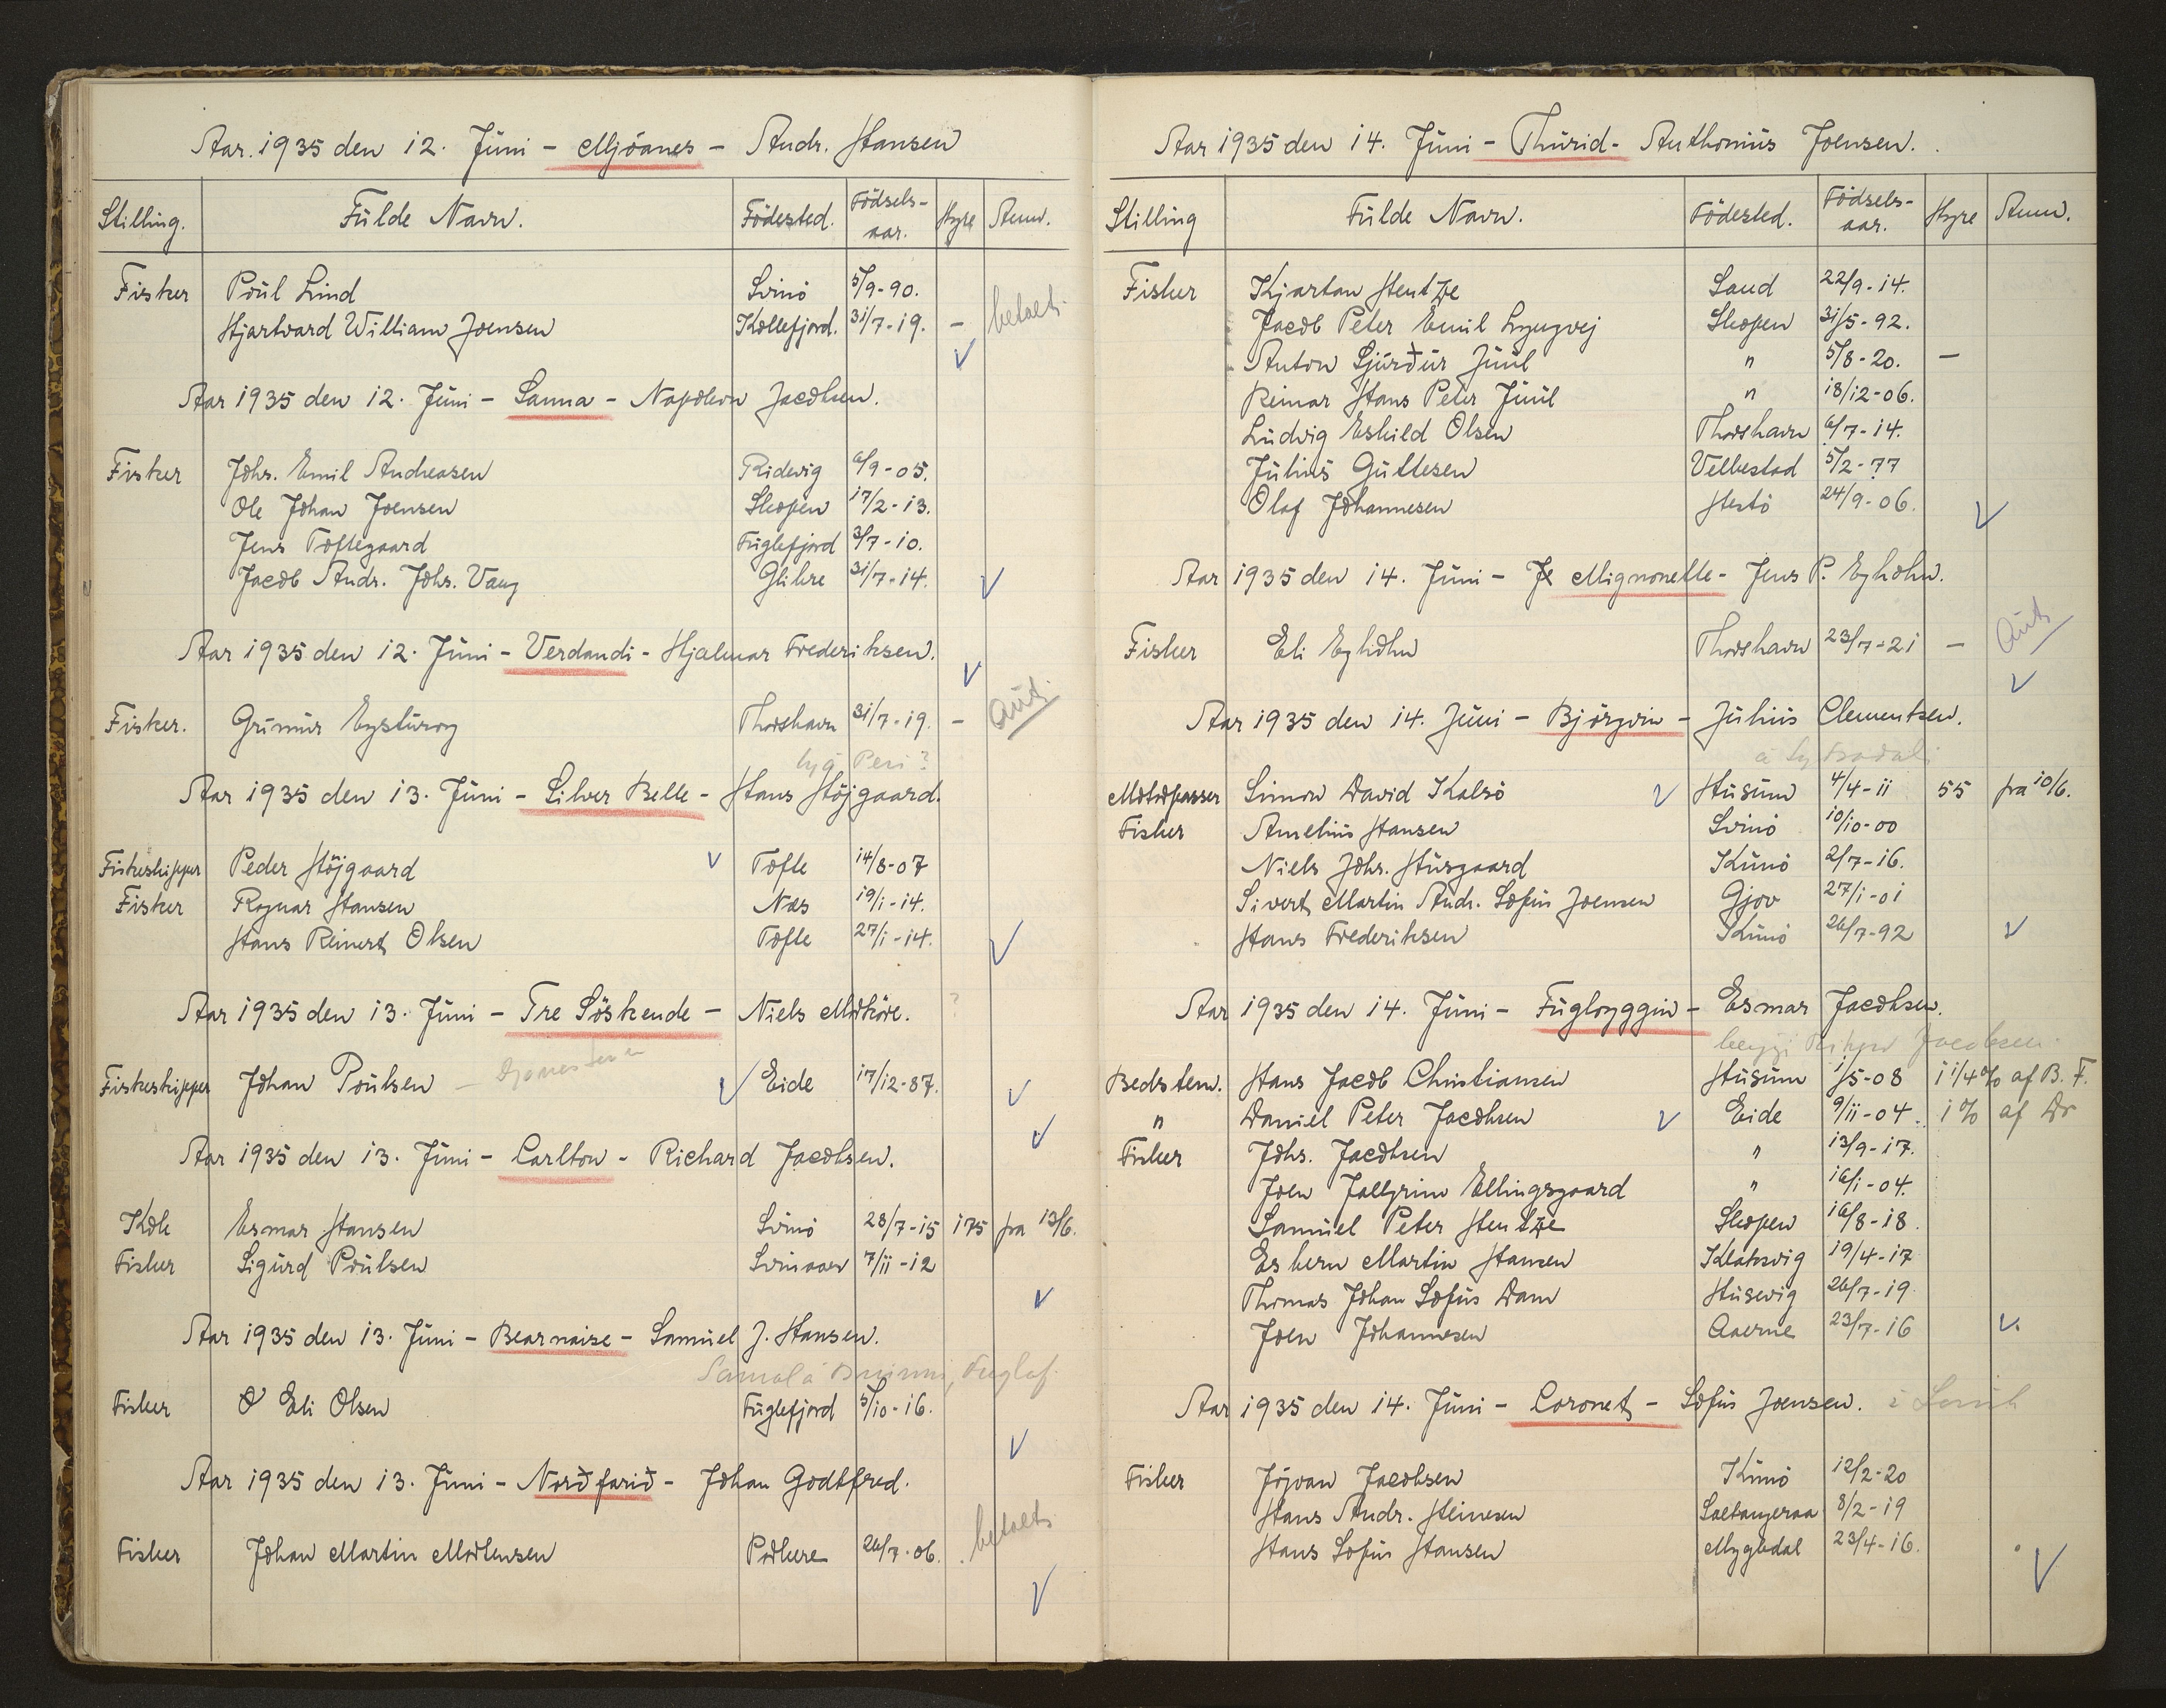 Aar. 1935 den 12. Júni - Mjóanes - Andr. Hansen
Stilling. Fúlde Navn. Födested. Födsels-aar. Hyre Anm.
Fisker Poúl Lind Svinö 5/9-90.
Hjartvard William Joensen Kollefjord. 31/7-19. - betalt
Aar 1935 den 12. Júni - Sanna - Napoleon Jacobsen.
Fisker Johs. Emil Andreasen Ridevig 6/9-05.
Ole Johan Joensen Skopen 17/2-13.
Jens Toftegaard Fúglefjord 3/7-10.
Jacob Andr. Johs. Vang Glibre 31/7-14.
Aar 1935 den 12. Júni - Verdandi - Hjalmar Frederiksen.
Fisker. Grímúr Eystúroy Thorshavn 31/7-19. - Aút.
Peri?
Aar 1935 den 13. Júni - Silver Belle - Hans Höjgaard.
Fiskeskipper Peder Höjgaard Tofte 14/8-07
Fisker Rognar Hansen Næs 19/1-14.
Hans Reinert Olsen Tofte 27/1-14.
Aar 1935 den 13. Júni - Tre Söskende - Niels Mohöre. ?
Fiskeskipper Johan Poúlsen - Eide 17/12-87.
Aar 1935 den 13. Júni - Carlton - Richard Jacobsen.
Kok Esmar Hansen Svinö 28/7-15 175 fra 13/6.
Fisker Sigúrd Poúlsen Svinaaer 7/11-12
Aar 1935 den 13. Júni - Bearnaise - Samúel J. Hansen.
Sámal á Brúnni, Fuglaf.
Fisker O Eli Olsen Fúglefjord 5/10-16.
Aar 1935 den 13. Júni - Norðfarið - Johan Godtfred.
Fisker Johan Martin Mortensen Porkere 26/7-06. betalt
Aar 1935 den 14. Júni - Thúrid - Anthoniús Joensen.
Stilling Fúlde Navn. Födested. Födsels-aar. Hyre Anm.
Fisker Kjartan Hentze Sand 22/9-14.
Jacob Peter Emil Lyngvej Skopen 31/5-92.
Anton Sjúrðúr Júúl " 5/8-20. -
Reimar Hans Peter Júúl " 18/12-06.
Lúdvig Eskild Olsen Thorshavn 6/7-14.
Júliús Gúttesen Velbestad 5/2-77
Olaf Johannesen Hestö 24/9-06.
Aar 1935 den 14. Júni - Je Mignonette - Jens P. Eyholm.
Fisker Eli Eyholm Thorshavn 23/7-21 - Aút
Aar 1935 den 14. Júni - Björgvin - Júliús Clementsen.
Motorpasser Simon David Kalsö Húsúm 4/4-11 55 fra 10/6.
Fisker Aneliús Hansen Svinö 10/10-00
Niels Johs. Húsgaard Kúnö 2/7-16.
Sivert Martin Andr. Sofús Joensen Gjov 27/1-01
Hans Frederiksen Kúnö 26/7-92
Aar 1935 den 14. Júni - Fúgloyggin - Esmar Jacobsen.
Jacobsen.
Bedstem. Hans Jacob Christiansen Húsúm 1/5-08 1 1/4% af B. F.
" Daniel Peter Jacobsen Eide 9/11-04. 1% af Do
Fisker Johs. Jacobsen " 13/9-17.
Joen Hallgrim Ellingsgaard " 16/1-04.
Samúel Peter Hentze Skopen 16/8-18.
Esbern Martin Hansen Klaksvig 19/4-17
Thomas Johan Sofús Dam Húsevig 26/7-19.
Joen Johannesen Aaerne 23/7-16
Aar 1935 den 14. Júni - Coronet - Sofús Joensen.
Fisker Jógvan Jacobsen Kúnö 12/2-20
Hans Andr. Heinesen Saltangeraa 8/2-19
Hans Sofús Hansen Mygledal 23/4-16.